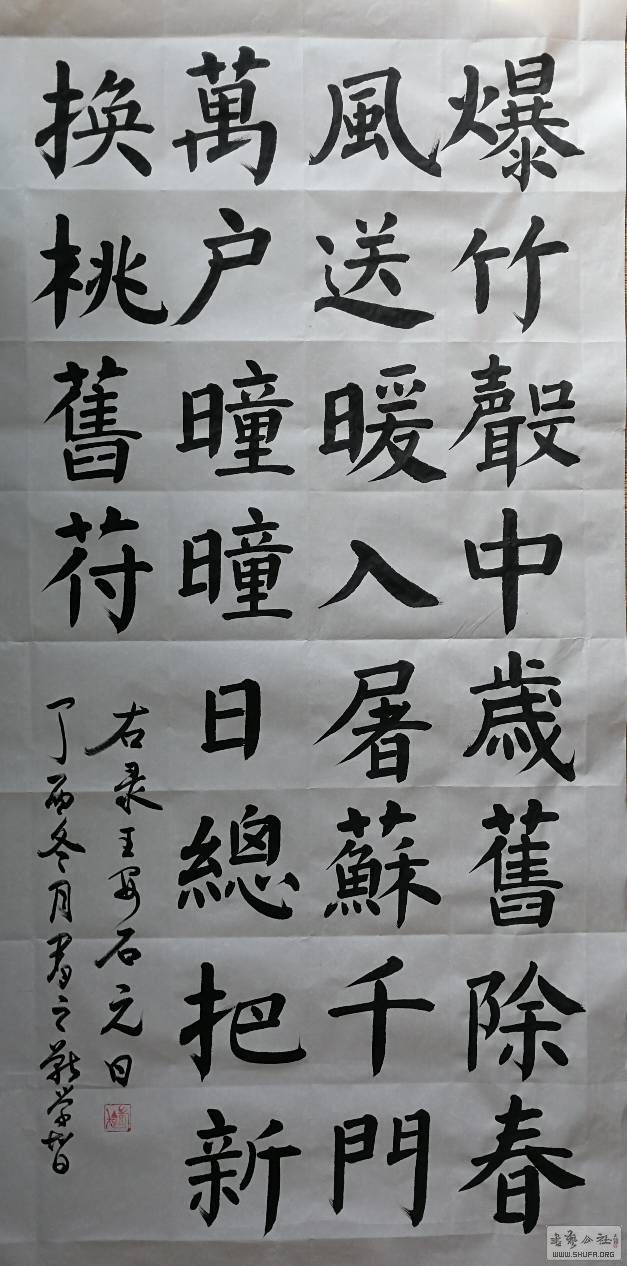 爆竹聲中歲舊除春
風送暖入屠蘇千門
萬户曈曈日總把新
換桃舊苻
右录王安石元日
丁酉冬月
书艺公社
WWW.SHUFA.ORG